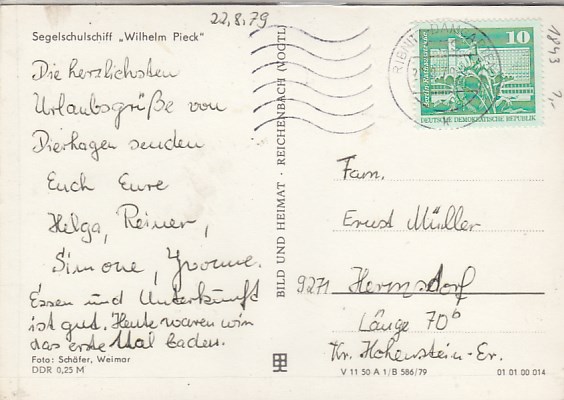 22.8.79
Segelschulschiff „Wilhelm Pieck"
Die herzlichsten
Urlaubsgrüße von
Dierhagen senden
Euch Eure
Helga, Reiner,
Simone, Yvonne.
Essen und Unterkunft
ist gut. Heute waren wir
das erste Mal baden.
Foto: Schäfer, Weimar
DDR 0,25 M
BILD UND HEIMAT · REICHENBACH (VOGTL)
10
DEUTSCHE DEMOKRATISCHE REPUBLIK
1843
Fam.
Ernst Müller
9271 Hermsdorf
Länge 70b
Kr. Hohenstein-Er.
V 11 50 A 1/B 586/79
01 01 00 014